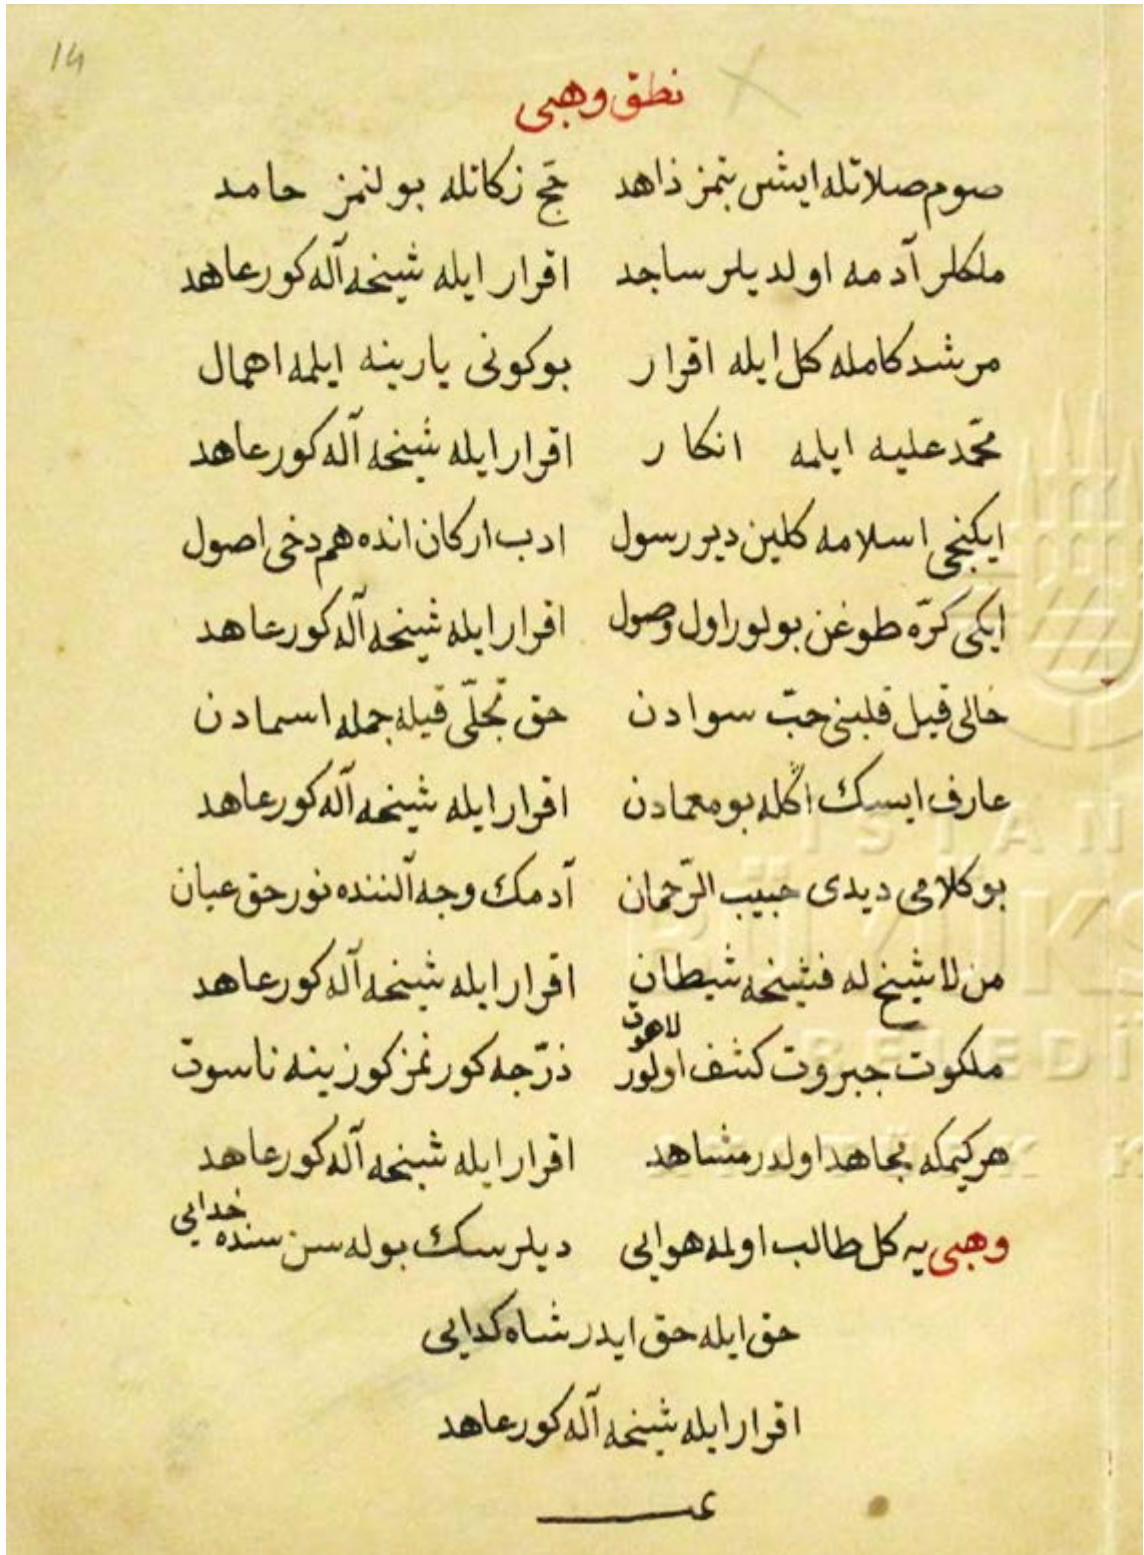 14
نطق وهبی
صوم صلاتله ایش بتمز ذاهد حج زکاتله بولنمز حامد
ملکلر آدمه اولدیلر ساجد اقرار ایله شیخه آله کور عاهد
مرشد کامله کل ایله اقرار بو کونی یارینه ایلمه اهمال
محمّد علیه ایلمه انکار اقرار ایله شیخه آله کور عاهد
ایکنجی اسلامه کلین دیر رسول ادب ارکان انده هم دخی اصول
ایکی کرّه طوغن بولور اول وصول اقرار ایله شیخه آله کور عاهد
خالی قیل قلبنی حبّ سوادن حق تجلّی قیله جمله اسمادن
عارف ایسک اکله بو معمادن اقرار ایله شیخه آله کور عاهد
بو کلامی دیدی حبیب الرّحمان آدمک وجه آلننده نور حق عیان
من لا شیخ له فشیخه شیطان اقرار ایله شیخه آله کور عاهد
ملکوت جبروت کشف اولور لاهوت ذرّجه کورنمز کوزینه ناسوت
هر کیمکه مجاهد اولدر مشاهد اقرار ایله شیخه آله کور عاهد
وهبی یه کل طالب اولمه هوایی دیلرسک بوله سن سنده خدایی
حق ایله حق ایدر شاه کدایی
اقرار ایله شیخه آله کور عاهد
İSTAN
BÜYÜKŞ
BELEDİ